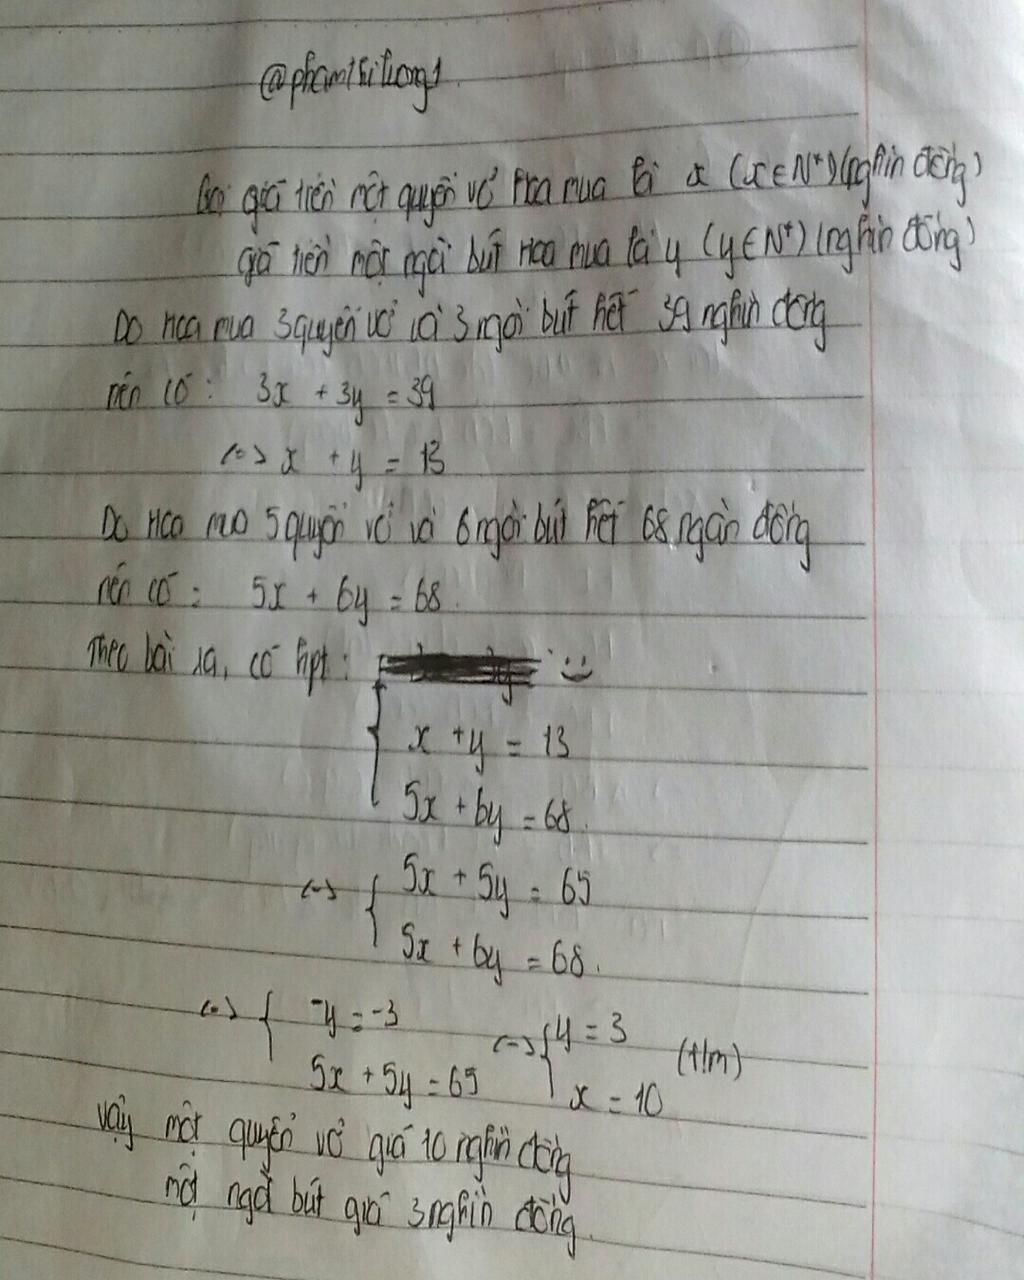 @phamthihuong1
Gọi giá tiền một quyển vở Hoa mua là x (x∈N*) (nghìn đồng)
giá tiền một ngòi bút Hoa mua là y (y∈N*) (nghìn đồng)
Do Hoa mua 3 quyển vở và 3 ngòi bút hết 39 nghìn đồng
nên có: 3x + 3y = 39
<=> x + y = 13
Do Hoa mua 5 quyển vở và 6 ngòi bút hết 68 ngàn đồng
nên có: 5x + 6y = 68.
Theo bài ra, có hpt:
{ x + y = 13
5x + 6y = 68.
<=> { 5x + 5y = 65
5x + 6y = 68.
<=> { -y = -3 <=> { y = 3 (t/m)
5x + 5y = 65 x = 10
Vậy một quyển vở giá 10 nghìn đồng
một ngòi bút giá 3 nghìn đồng.